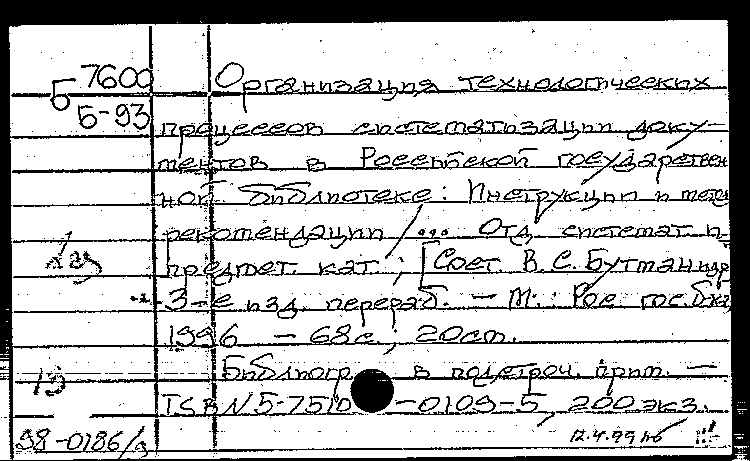 Б 7600
Б-93
Организация технологических
процессов систематизации доку-
ментов в Российской государствен
ной библиотеке: Инструкции и метод
рекомендации / ... Отд. системат. и
предмет. кат.; [Сост. В.С. Бутман и др
1 экз
3-е изд. перераб. – М.: Рос. гос. б-ка
1996 – 68 с.; 20 см.
Библиогр в подстроч. прим. –
ISBN 5-7510-0109-5, 200 экз.
98-0186/
12.4.99